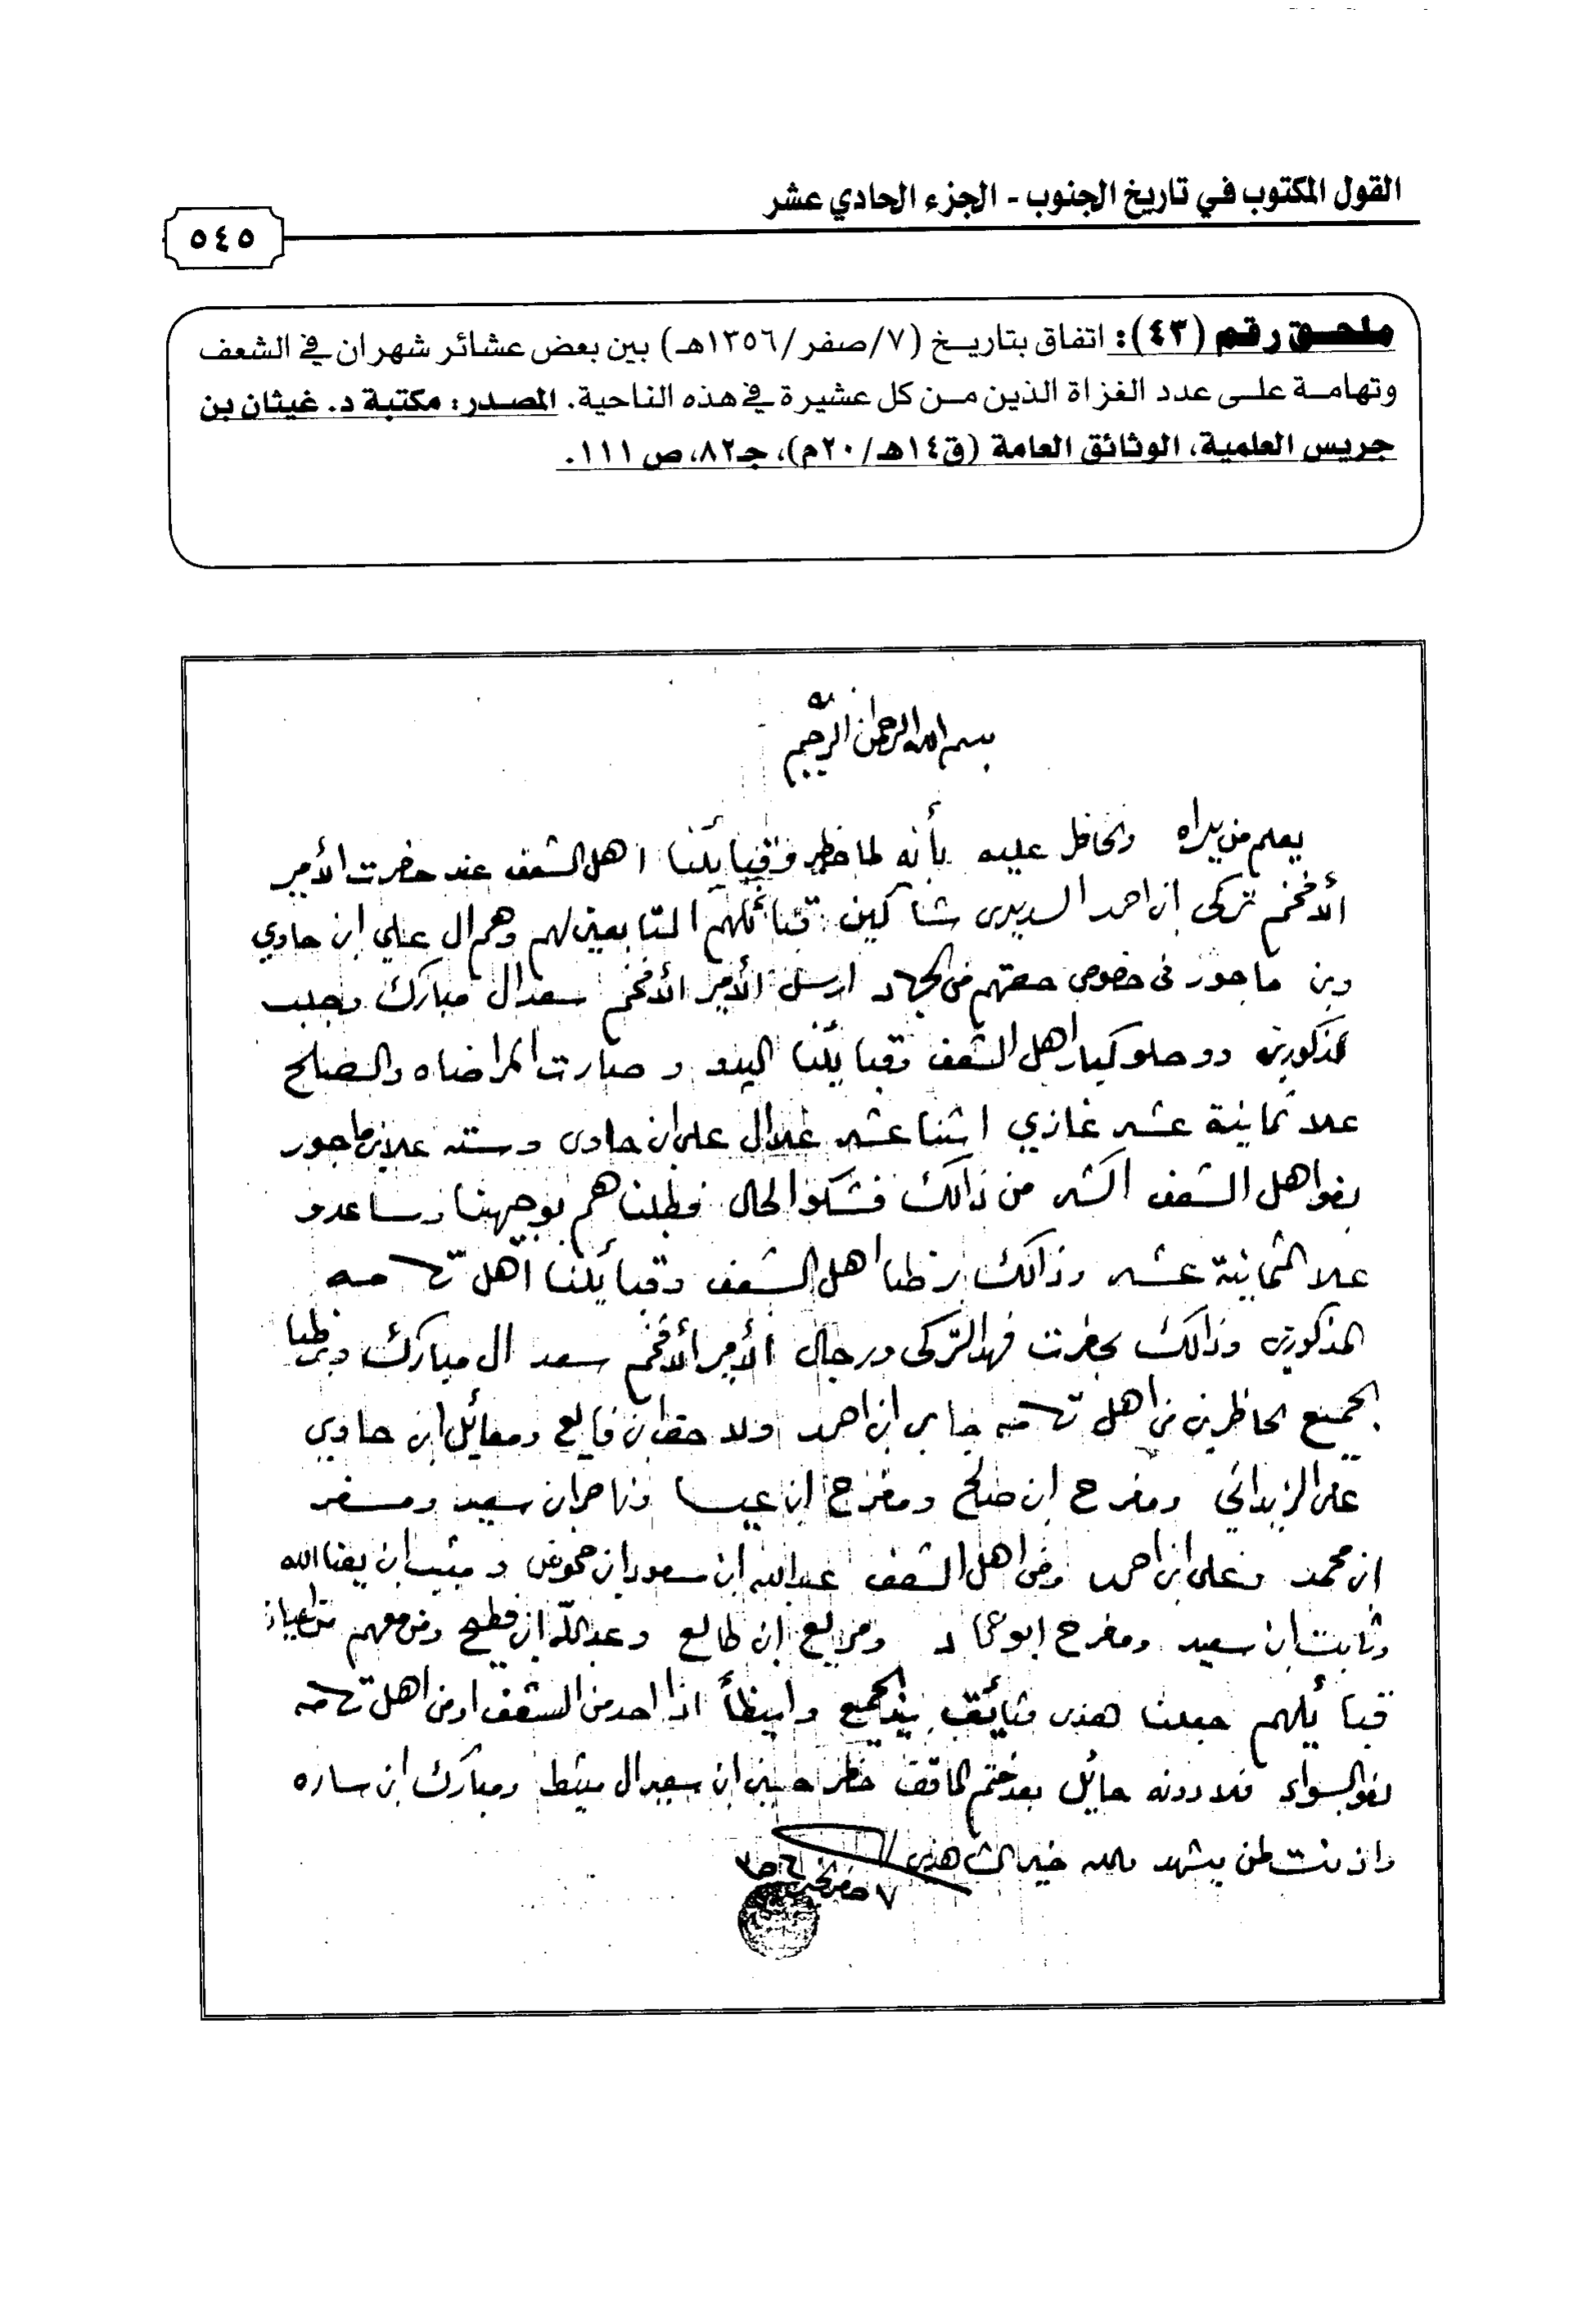 القول المكتوب في تاريخ الجنوب - الجزء الحادي عشر
٥٤٥
ملحق رقم (٤٣): اتفاق بتاريخ (٧/صفر/١٣٥٦هـ) بين بعض عشائر شهران في الشعف
وتهامة على عدد الغزاة الذين من كل عشيرة في هذه الناحية. المصدر: مكتبة د. غيثان بن
جريس العلمية، الوثائق العامة (ق١٤هـ/٢٠م)، جـ٨٢، ص ١١١.
بسم الله الرحمن الرحيم
يعلم من يراه عليه بأنه لما خطر وقبايلنا اهل الشعف عند حضرت الأمير
الأفخم تركي ابن احمد السديري شاكين قبائلهم التابعين لهم وهم ال علي ابن حاوي
وبن ماحور في خصوص حقهم من الجهاد ارسل الأمير الأفخم سعد ال مبارك وجلب
المذكورين ووصلو كبار اهل الشعف وقبايلنا البدو وصارت المراضاه والصلح
علا ثمانية عشر غازي اثنا عشر علا ال علي ابن حاوي وسته علا بن ماحور
بغو اهل الشعف اكثر من ذالك فشكو الحال فطلبناهم بوجيهنا وساعدو
علا الثمانية عشر وذالك برظا اهل الشعف وقبايلنا اهل تهامه
المذكورين وذالك بحضرت فهد التركي ورجال الأمير الأفخم سعد ال مبارك وبرظا
الجميع الحاظرين من اهل تهامه جابر ابن احمد ولاحق ابن فايع ومعائل ابن حاوي
علي الزيداني ومفرح ابن صالح ومفرح ابن عيسا وناصر ابن سعيد ومسفر
ابن محمد وعلي ابن احمد ومن اهل الشعف عبدالله ابن سعود ابن محوض ابن
وثابت ابن سعيد ومفرح ابو ومريع ابن طالع وعبدالله ابن فطيح ومن معهم من اعيان
قبائلهم جعلنا هذى وثائق بيد الجميع وايظاً اذا احد من الشعف او من اهل تهامه
بغو السواء فلا دونه حايل بعد ختم حظر حسين ابن سعيد ال مشيط ومبارك ابن ساره
واذنت لمن يشهد والله خير الشاهدين
٧ صفر